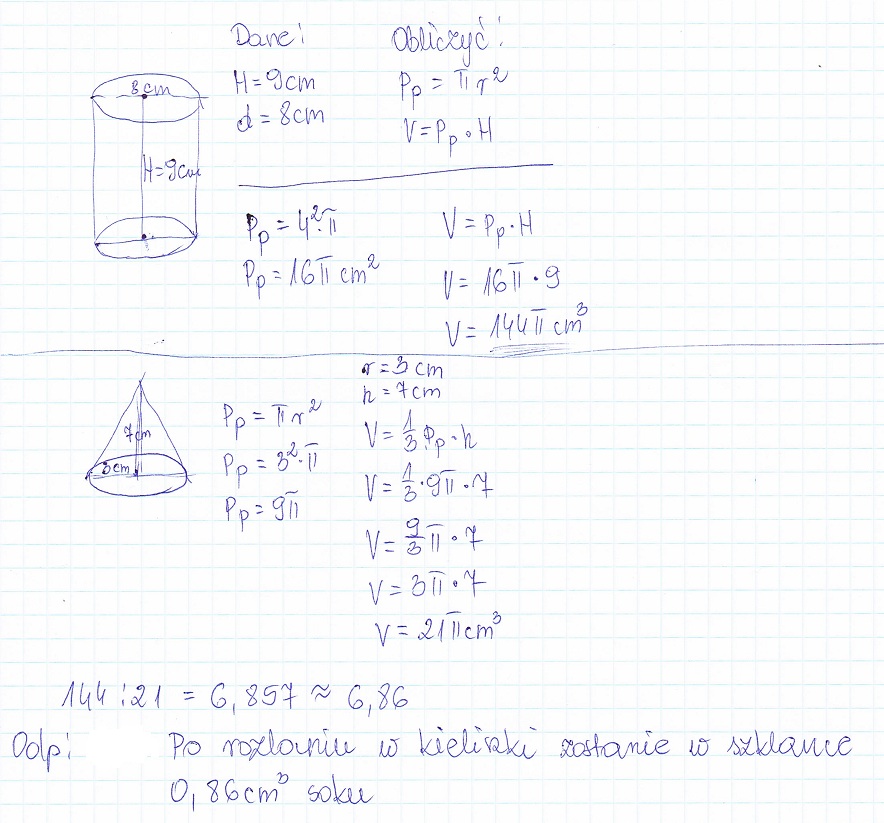 Dane:
H = 9cm
d = 8cm
Obliczyć:
Pp = πr²
V = Pp · H
8cm
H=9cm
Pp = 4²·π
Pp = 16π cm²
V = Pp · H
V = 16π · 9
V = 144π cm³
7cm
3cm
Pp = πr²
Pp = 3²·π
Pp = 9π
r = 3 cm
h = 7cm
V = 1/3 Pp · h
V = 1/3 · 9π · 7
V = 9/3 π · 7
V = 3π · 7
V = 21π cm³
144 : 21 = 6,857 ≈ 6,86
Odp: Po rozlaniu w kieliszki zostanie w szklance
0,86cm³ soku